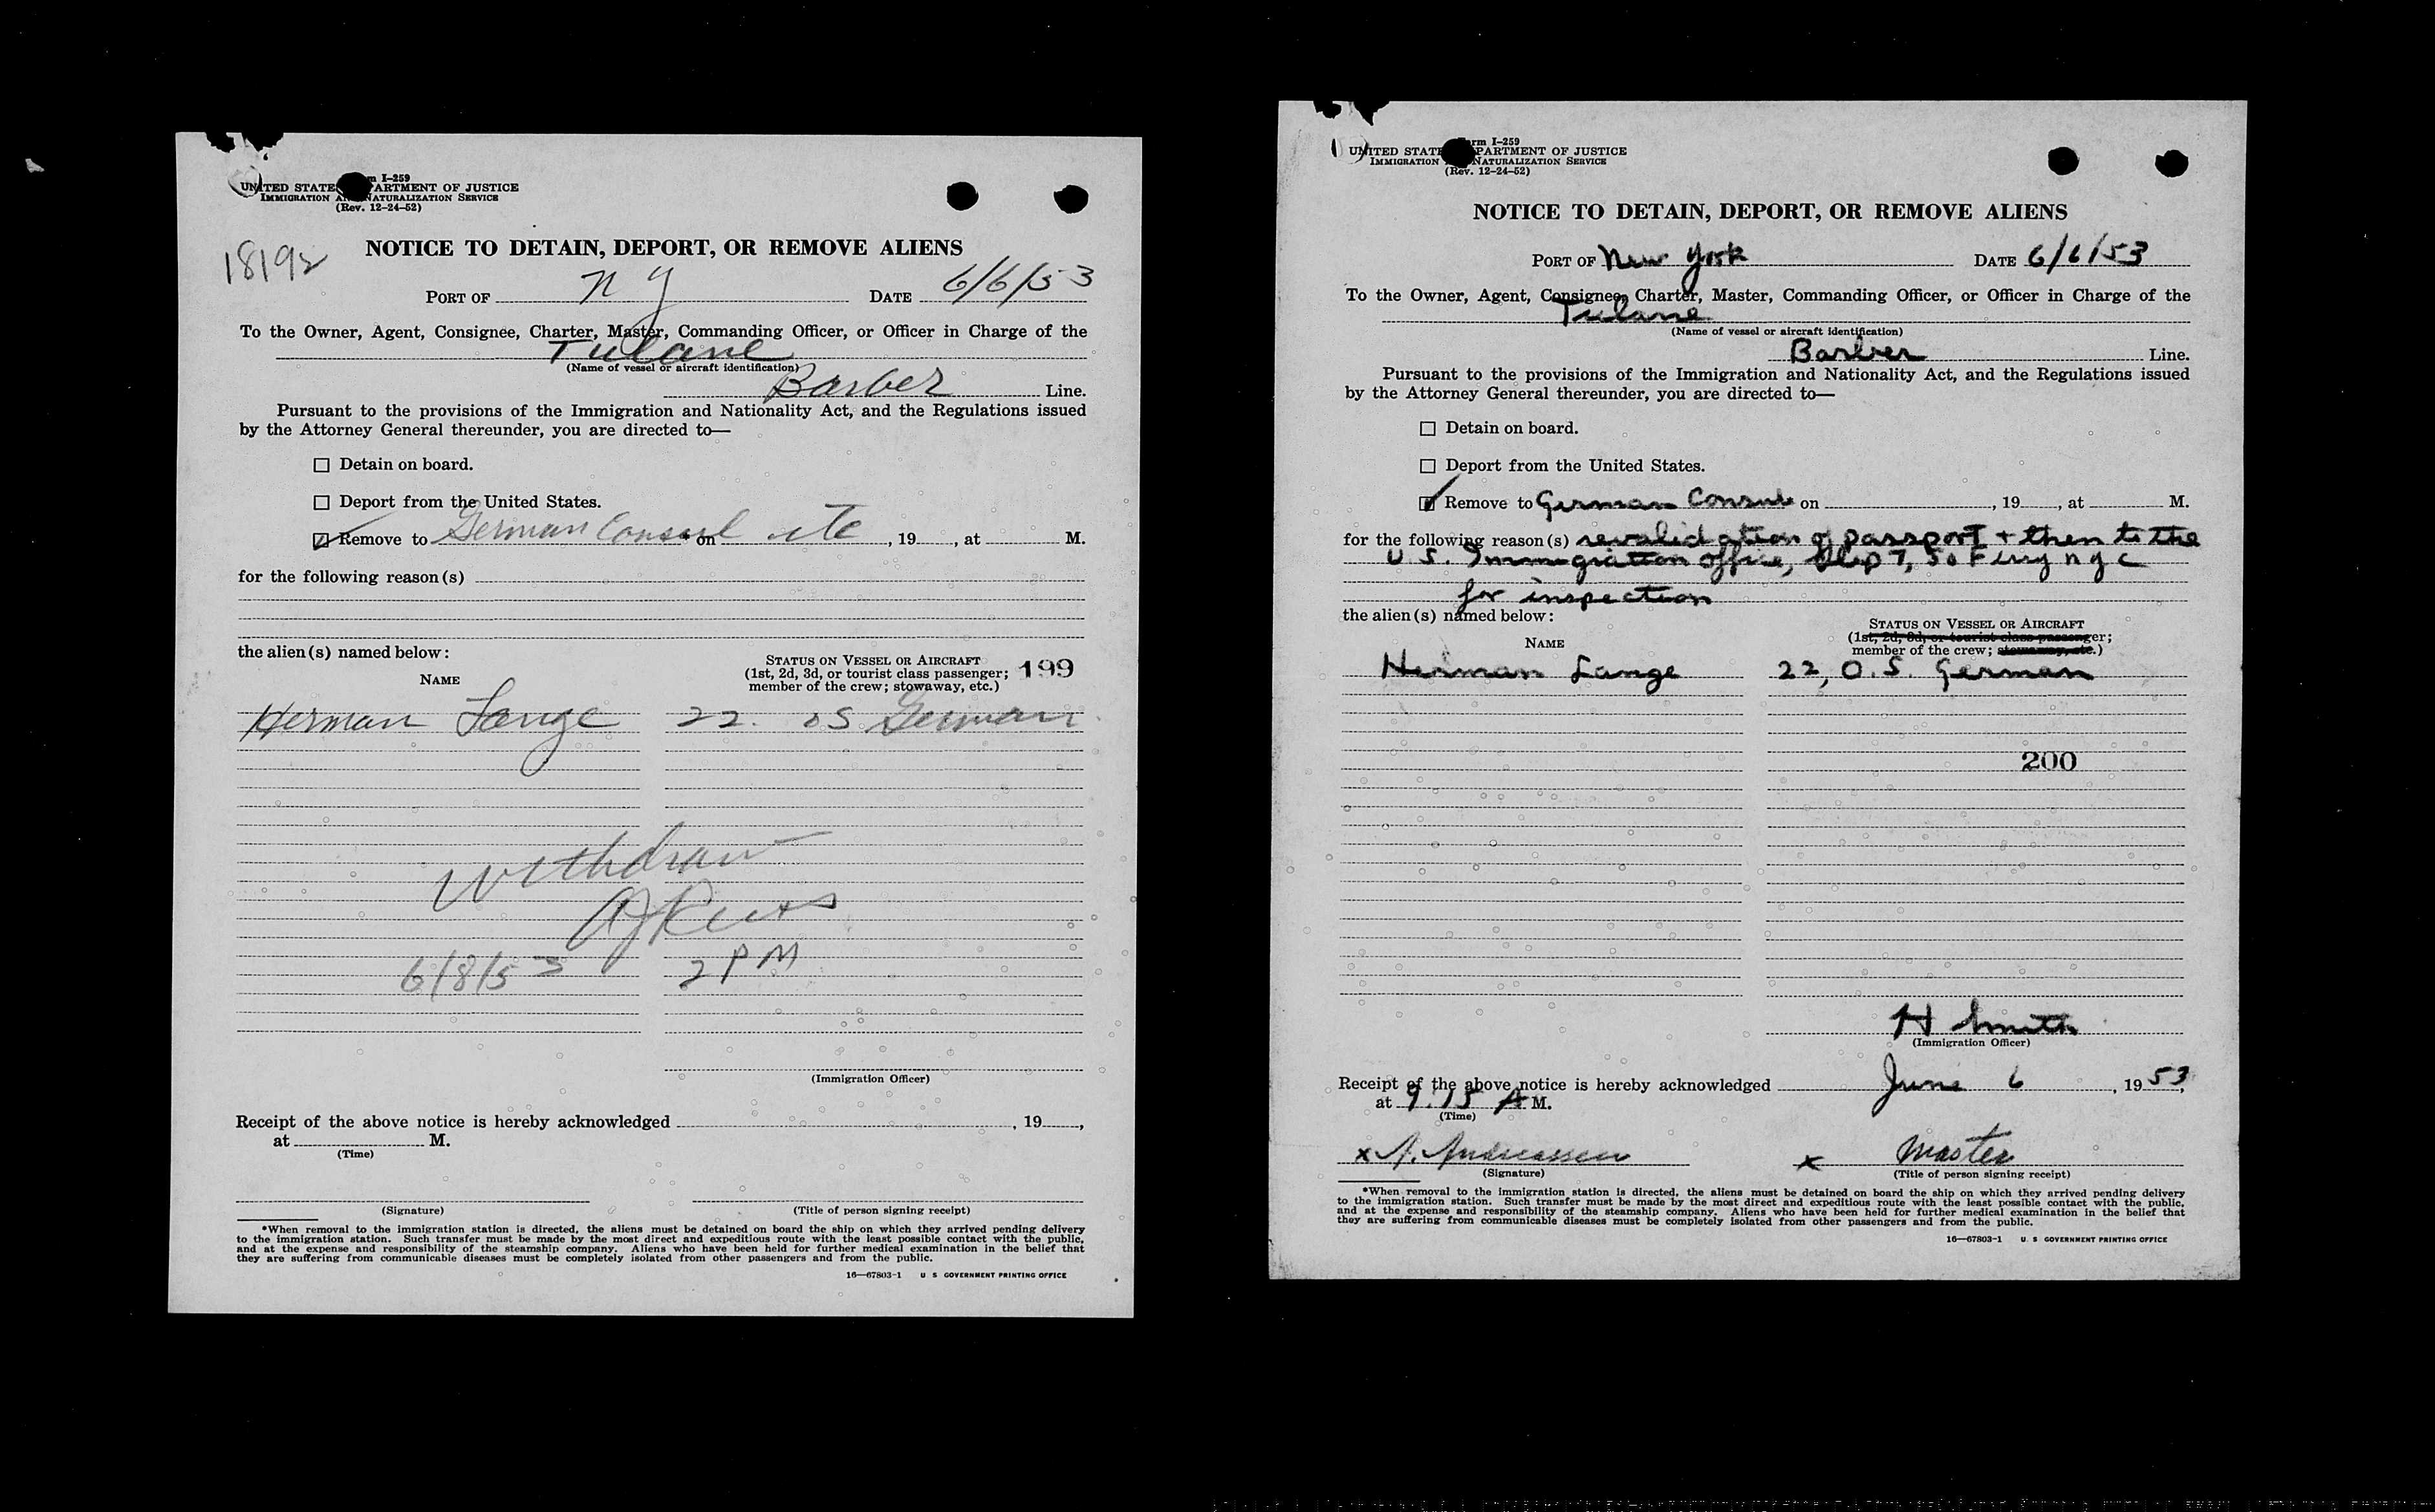 Form I-259
UNITED STATES DEPARTMENT OF JUSTICE
IMMIGRATION AND NATURALIZATION SERVICE
(Rev. 12-24-52)
18192
NOTICE TO DETAIN, DEPORT, OR REMOVE ALIENS
PORT OF N Y DATE 6/6/53
To the Owner, Agent, Consignee, Charter, Master, Commanding Officer, or Officer in Charge of the
Tulane
(Name of vessel or aircraft identification)
Barber Line.
Pursuant to the provisions of the Immigration and Nationality Act, and the Regulations issued
by the Attorney General thereunder, you are directed to—
☐ Detain on board.
☐ Deport from the United States.
☑ Remove to German Consul* on etc, 19, at M.
for the following reason(s)
the alien(s) named below:
NAME
STATUS ON VESSEL OR AIRCRAFT
(1st, 2d, 3d, or tourist class passenger;
member of the crew; stowaway, etc.)
199
Herman Lange 22. OS German
Withdraw
6/8/53 2 PM
(Immigration Officer)
Receipt of the above notice is hereby acknowledged , 19,
at M.
(Time)
(Signature) (Title of person signing receipt)
*When removal to the immigration station is directed, the aliens must be detained on board the ship on which they arrived pending delivery
to the immigration station. Such transfer must be made by the most direct and expeditious route with the least possible contact with the public,
and at the expense and responsibility of the steamship company. Aliens who have been held for further medical examination in the belief that
they are suffering from communicable diseases must be completely isolated from other passengers and from the public.
16—67803-1 U S GOVERNMENT PRINTING OFFICE
Form I-259
UNITED STATES DEPARTMENT OF JUSTICE
IMMIGRATION AND NATURALIZATION SERVICE
(Rev. 12-24-52)
NOTICE TO DETAIN, DEPORT, OR REMOVE ALIENS
PORT OF New York DATE 6/6/53
To the Owner, Agent, Consignee, Charter, Master, Commanding Officer, or Officer in Charge of the
Tulane
(Name of vessel or aircraft identification)
Barber Line.
Pursuant to the provisions of the Immigration and Nationality Act, and the Regulations issued
by the Attorney General thereunder, you are directed to—
☐ Detain on board.
☐ Deport from the United States.
☑ Remove to German Consul on , 19, at M.
for the following reason(s) revalidation of passport + then to the
U.S. Immigration office, Slip 7, So Ferry n y c
for inspection
the alien(s) named below:
NAME
STATUS ON VESSEL OR AIRCRAFT
(1st, 2d, 3d, or tourist class passenger;
member of the crew; stowaway, etc.)
Herman Lange 22, O.S. German
200
H Smith
(Immigration Officer)
Receipt of the above notice is hereby acknowledged June 6, 1953,
at 9.15 A M.
(Time)
x A. Andreassen x Master
(Signature) (Title of person signing receipt)
*When removal to the immigration station is directed, the aliens must be detained on board the ship on which they arrived pending delivery
to the immigration station. Such transfer must be made by the most direct and expeditious route with the least possible contact with the public,
and at the expense and responsibility of the steamship company. Aliens who have been held for further medical examination in the belief that
they are suffering from communicable diseases must be completely isolated from other passengers and from the public.
16—67803-1 U. S GOVERNMENT PRINTING OFFICE